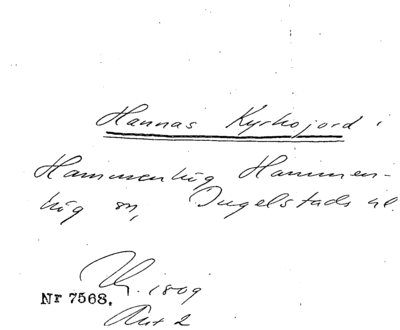 Hannas Kyrkojord i
Hammenhög Hammen-
hög sn, Ingelstads hd.
1809
Nr 7568.
Akt 2